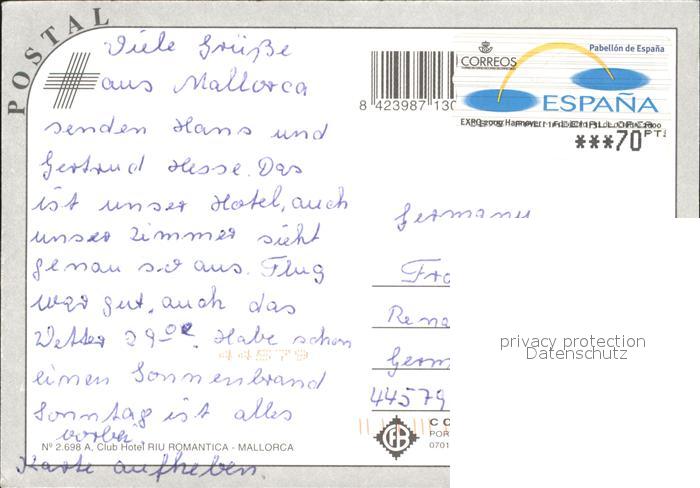 POSTAL
Viele Grüße
aus Mallorca
senden Hans und
Gertrud Hesse. Das
ist unser Hotel, auch
unser Zimmer sieht
genau so aus. Flug
war gut, auch das
Wetter 29°. Habe schon
einen Sonnenbrand
Sonntag ist alles
vorbei.
Karte aufheben.
Nº 2.698 A, Club Hotel RIU ROMANTICA - MALLORCA
8 423987 130
CORREOS
Pabellón de España
ESPAÑA
***70 PTS
Germany
Fra
Rena
Germ
44579
44579
CO
POR
0701
privacy protection
Datenschutz